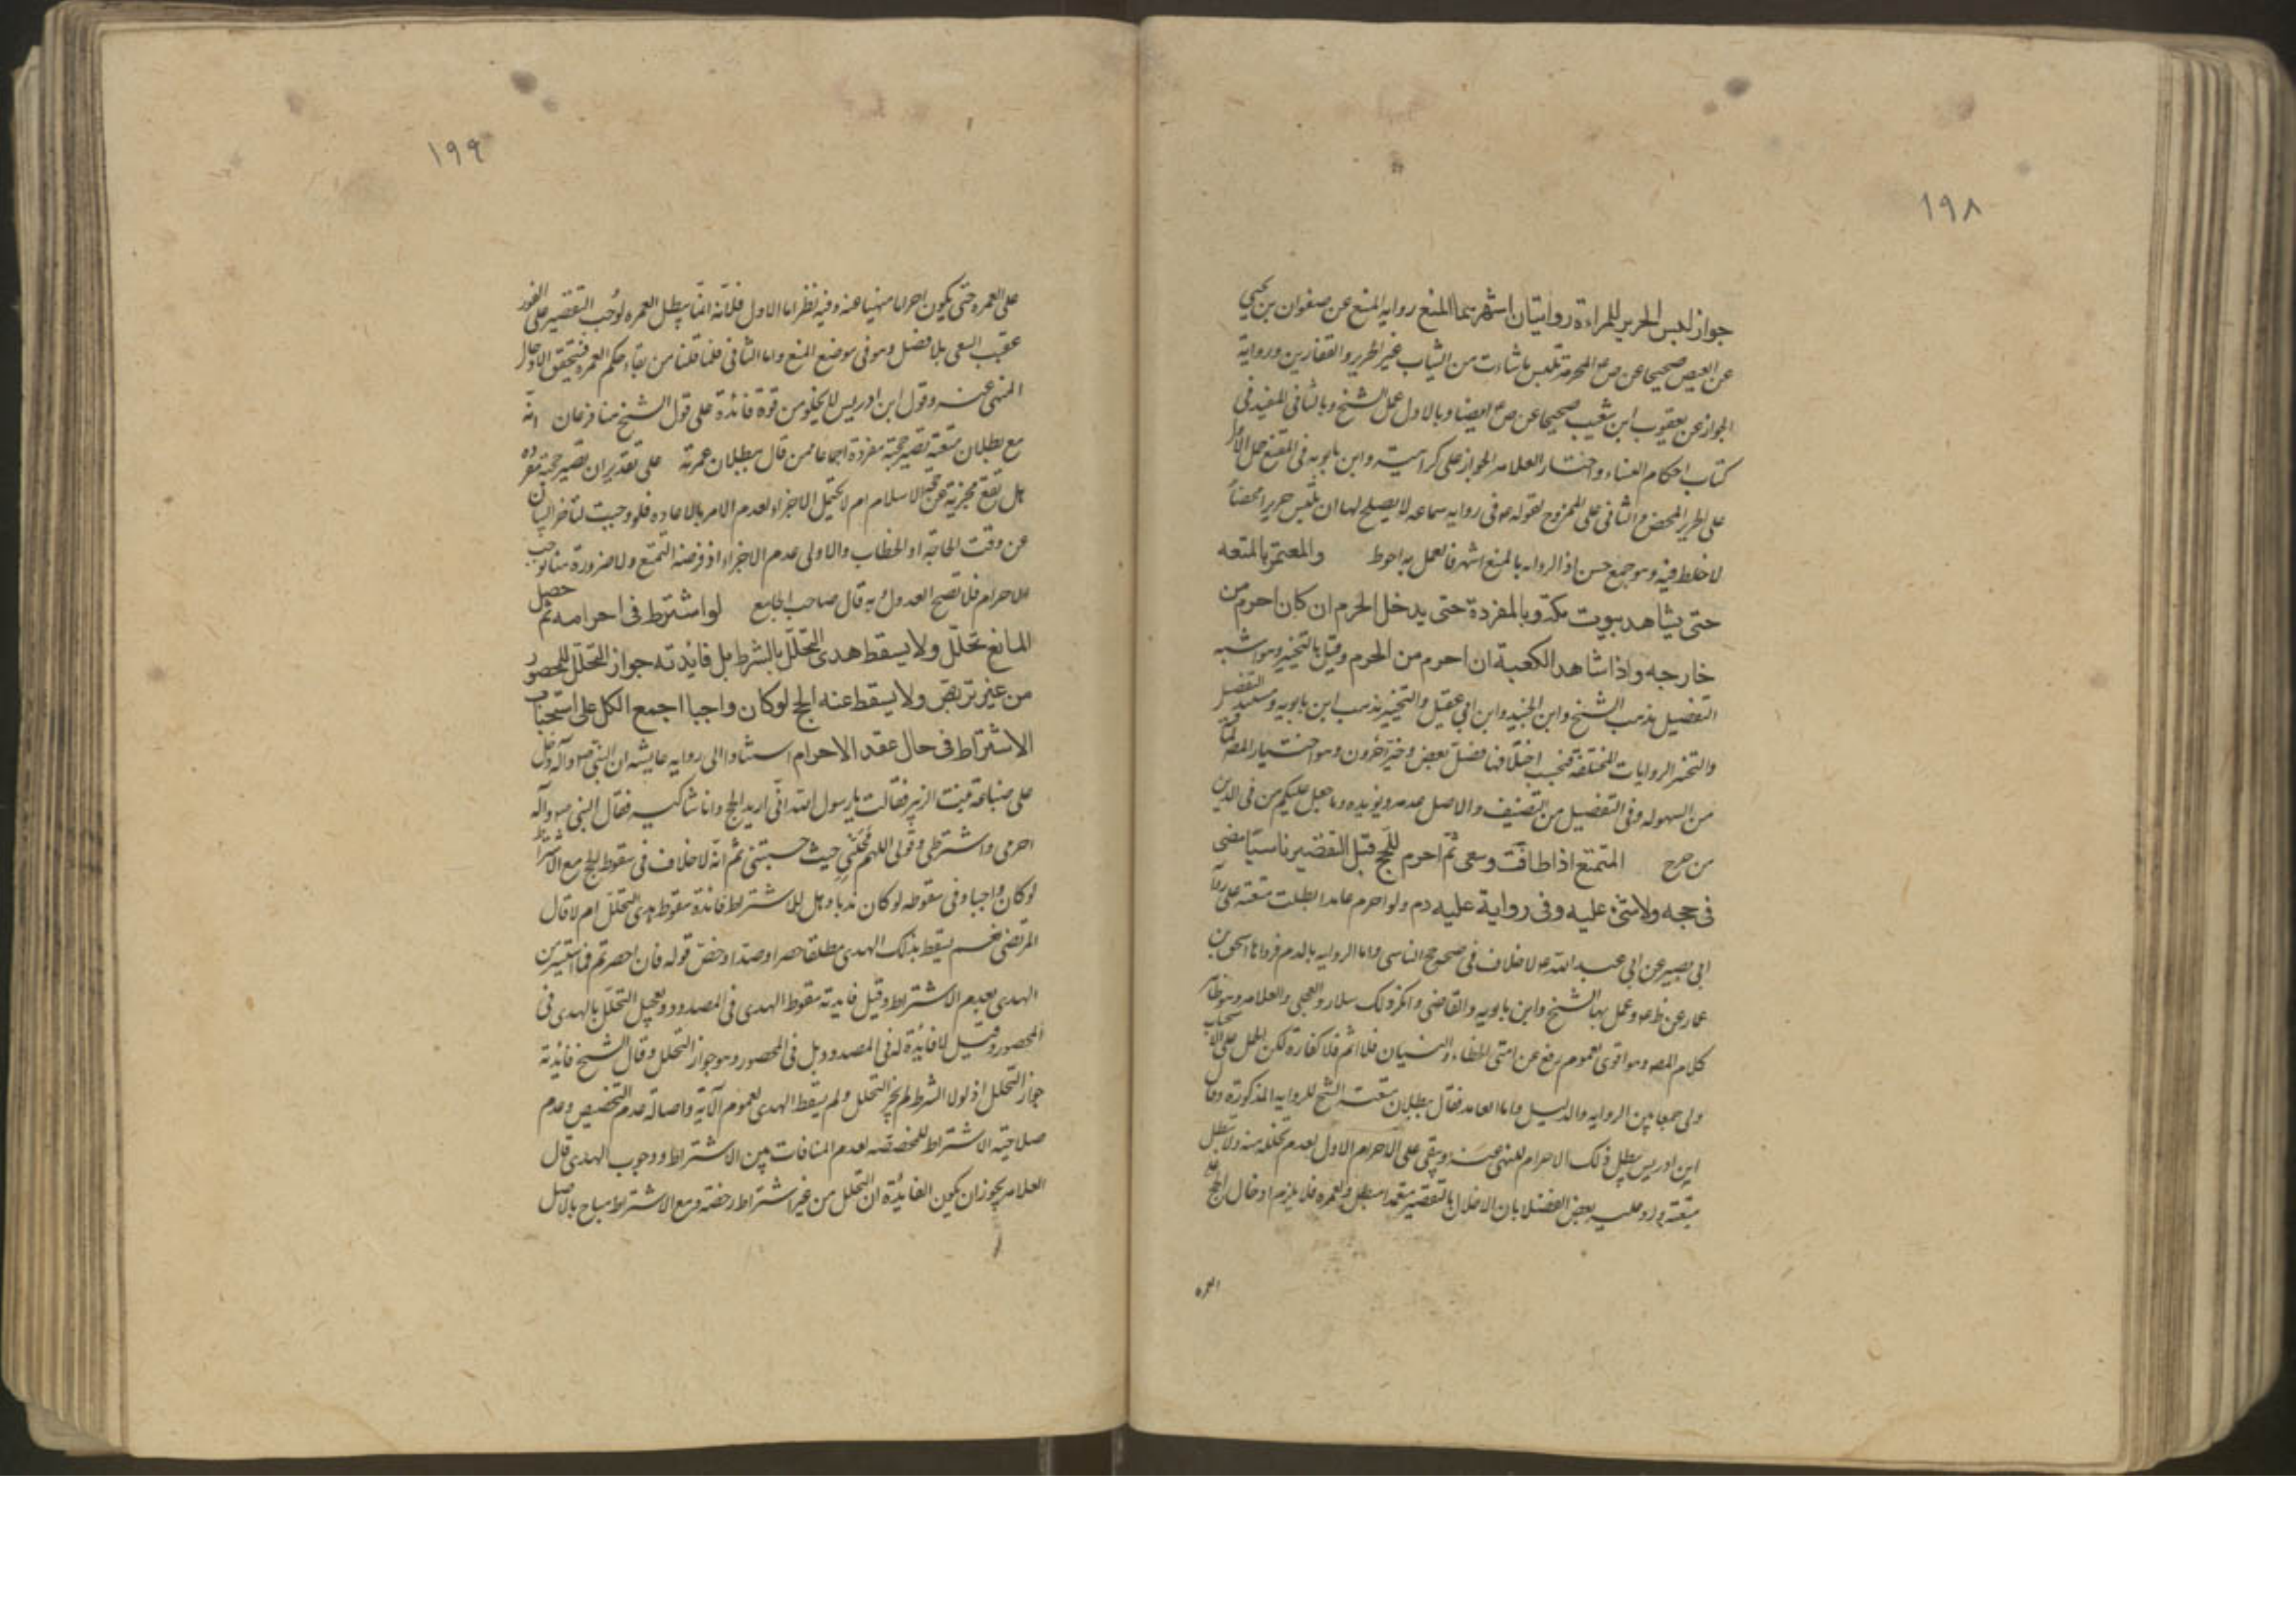 ١٩٨
جواز لبس الحرير للمراءة روايتان اشهرهما المنع روايه المنع عن صفوان بن يحيى
عن العيص صحيحا عن ص ع المحرمة تلبس ما شاءت من الثياب غير الحرير والقفازين ورواية
الجواز عن يعقوب ابن شعيب صحيحا عن ص ع ايضا وبالاول عمل الشيخ وبالثانى المفيد فى
كتاب احكام النساء واختار العلامه الجواز على كراهيته وابن بابويه فى المقنع حمل الاول
على الحرير المحض والثانى على الممزوج لقوله ع فى روايه سماعه لا يصلح لها ان تلبس حريرا محضا
لا خلط فيه وهو جمع حسن اذ الروايه بالمنع اشهر فالعمل به احوط والمعتمر بالمتعه
حتى يشاهد بيوت مكة وبالمفردة حتى يدخل الحرم ان كان احرم من
خارجه واذا شاهد الكعبة ان احرم من الحرم وقيل بالتخيير وهو اشبه
التفضيل مذهب الشيخ وابن الجنيد وابن ابى عقيل والتخيير مذهب ابن بابويه ومستند التفضيل
والتخيير الروايات المختلفة فبحسب اختلافها فضل بعض وخير اخرون وهو اختيار المصـ لما فيه
من السهوله وفى التفضيل من التضييق والاصل عدمه ويؤيده وما جعل عليكم من فى الدين
من حرج المتمتع اذا طاف وسعى ثم احرم للحج قبل التقصير ناسيا مضى
فى حجه ولا شئ عليه وفى رواية عليه دم ولو احرم عامدا بطلت متعته على رواية
ابى بصير عن ابى عبد الله ع لا خلاف فى صحه حج الناسى واما الروايه بالدم فرواها اسحق بن
عمار عن ظ ع وعمل بها الشيخ وابن بابويه والقاضى وانكر ذلك سلار والعجلى والعلامه وهو ظاهر
كلام المصـ وهو اقوى لعموم رفع عن امتى الخطاء والنسيان فلا اثم فلا كفارة لكن الحمل على الاستحباب
اولى جمعا بين الروايه والدليل واما العامد فقال ببطلان متعته الشيخ للروايه المذكورة وقال
ابن ادريس يبطل ذلك الاحرام للنهى عنه ويبقى على الاحرام الاول لعدم تحلله منه ولا تبطل
متعته ورد عليه بعض الفضلا بان الاخلال بالتقصير متعمدا مبطل للعمره فلا يلزم ادخال الحج على
العمره
١٩٩
على العمره حتى يكون احراما منهيا عنه وفيه نظر اما الاول فلانه انما يبطل العمره لو وجب التقصير على الفور
عقيب السعى بلا فصل وهو فى موضع المنع واما الثانى فلما قلنا من بقاء حكم العمره فيتحقق الادخال
المنهى عنه وقول ابن ادريس لا يخلو من قوة فائدة على قول الشيخ هنا فرعان انه
مع بطلان متعته تصير حجته مفردة اجماعا ممن قال ببطلان عمرته على تقدير ان تصير حجته مفرده
هل تقع مجزية عن حجة الاسلام ام لا يحتمل الاجزاء لعدم الامر بالاعاده فلو وجبت لتاخر البيان
عن وقت الحاجة او الخطاب والاولى عدم الاجزاء اذ فرضه التمتع ولا ضرورة هنا توجب
الاحرام فلا تصح العدول به قال صاحب الجامع لو اشترط فى احرامه ثم حصل
المانع تحلل ولا يسقط هدى التحلل بالشرط بل فايدته جواز التحلل للمحصور
من غير تربص ولا يسقط عنه الحج لو كان واجبا اجمع الكل على استحباب
الاشتراط فى حال عقد الاحرام استنادا الى روايه عايشه ان النبى ص وآله دخل
على ضباعة بنت الزبير فقالت يا رسول الله انى اريد الحج وانا شاكيه فقال النبى ص وآله
احرمى واشترطى وقولى اللهم محلى حيث حبستنى ثم انه لا خلاف فى سقوط الحج مع الاشتراط
لو كان واجبا وفى سقوطه لو كان ندبا وهل للاشتراط فائدة سقوط هدى التحلل ام لا قال
المرتضى نعم يسقط بذلك الهدى مطلقا حصرا وصدا وخص قوله فان احصرتم فما استيسر من
الهدى بعدم الاشتراط وقيل فايدته سقوط الهدى فى المصدود وتعجيل التحلل بالهدى فى
المحصور وقيل لا فائدة له فى المصدود بل فى المحصور وهو جواز التحلل وقال الشيخ فائدته
جواز التحلل اذ لولا الشرط لم يجز التحلل ولم يسقط الهدى لعموم الآية واصالة عدم التخصيص وعدم
صلاحية الاشتراط للمخصصة لعدم المنافات بين الاشتراط ووجوب الهدى قال
العلامه يجوز ان يكون الفائدة ان التحلل من غير اشتراط رخصة ومع الاشتراط مباح بالاصل